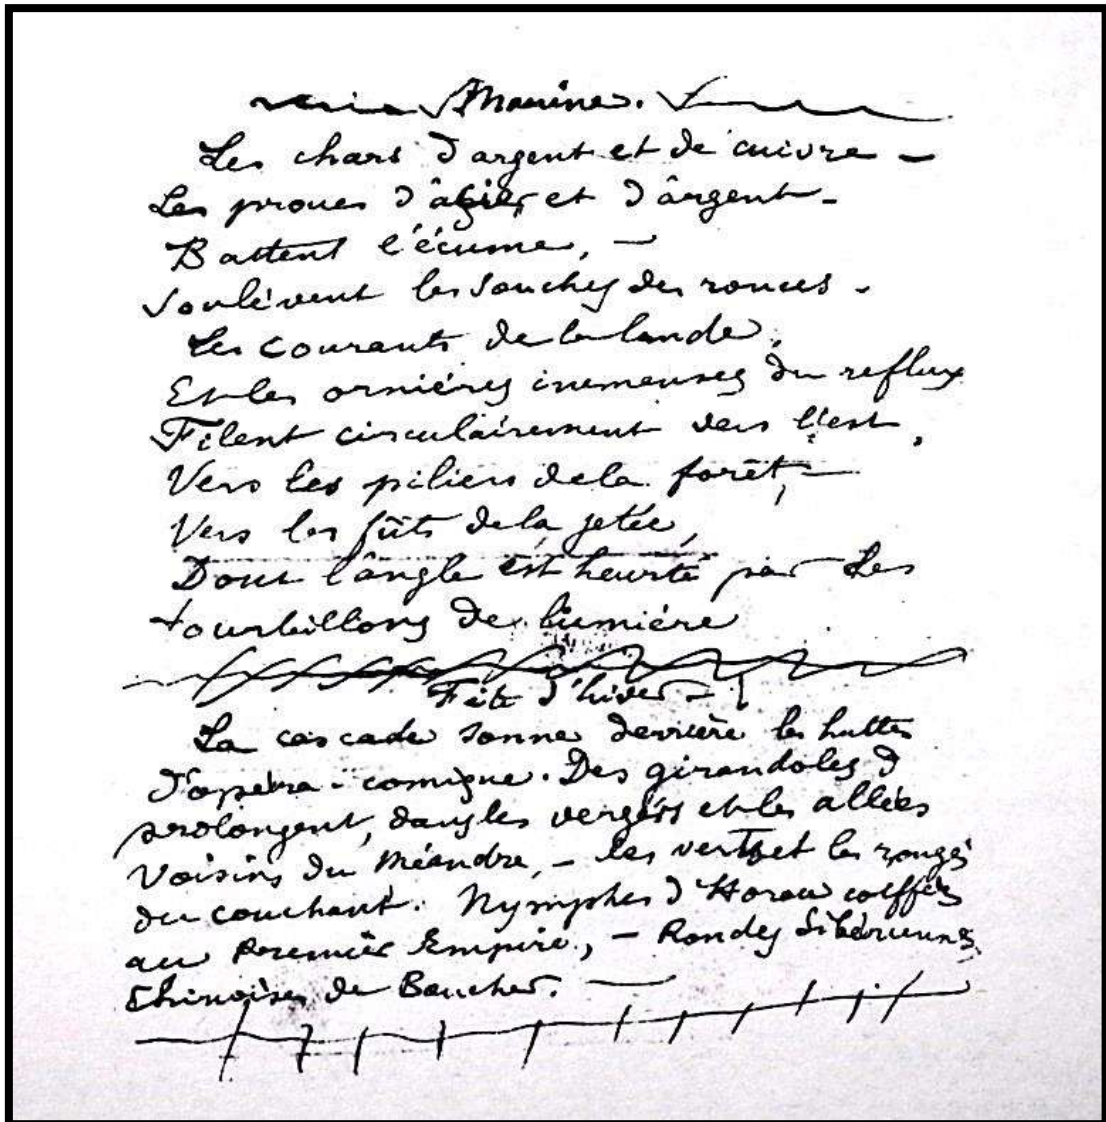 Marine.
Les chars d'argent et de cuivre –
Les proues d'âcier et d'ârgent –
Battent l'écume, –
Soulèvent les souches des ronces –
Les courants de la lande,
Et les ornières immenses du reflux
Filent circulairement vers l'est,
Vers les piliers de la forêt, –
Vers les fûts de la jetée,
Dont l'ângle est heurté par des
tourbillons de lumière
Fête d'hiver –
La cascade sonne derrière les huttes
d'opéra-comique. Des girandoles
prolongent, dans les vergers et les allées
voisins du Méandre, – les verts et les rouges
du couchant. Nymphes d'Horace coiffées
au Premier Empire, – Rondes Sibériennes,
Chinoises de Boucher. –